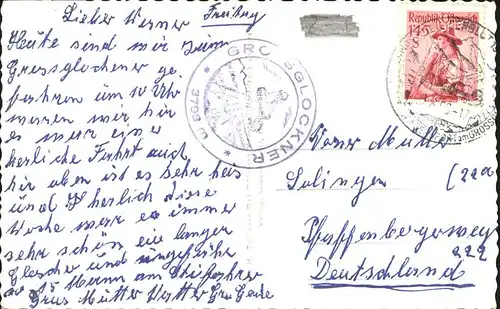 Lieber Werner
Freitag
Heute sind wir zum
Grossglockner ge
fahren um 10 Uhr
waren wir hir
es war eine
herliche Fahrt auch
hir oben ist es sehr heis
und herlich diese
Woche war es immer
sehr schön ein langer
Glescher und ungefähr
15 Mann am
Grus Mutter Vatter
GROSSGLOCKNER
3798
Republik Österreich
1.45
Werner Müller
Solingen (22a
Pfaffenbergerweg
222
Deutschland